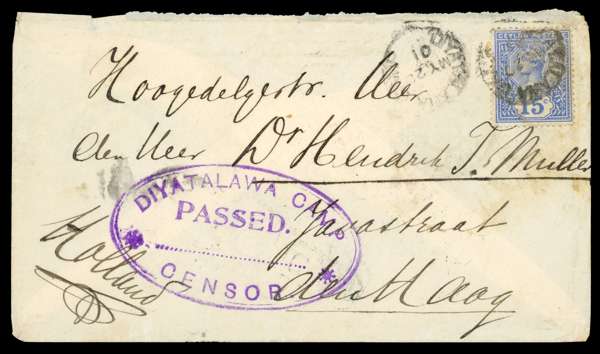 CEYLON
15
01
Hoogedelgestr. Heer
den Heer Dr Hendrik P. Muller
DIYATALAWA CAMP
PASSED.
CENSOR
Javastraat
Holland
den Haag